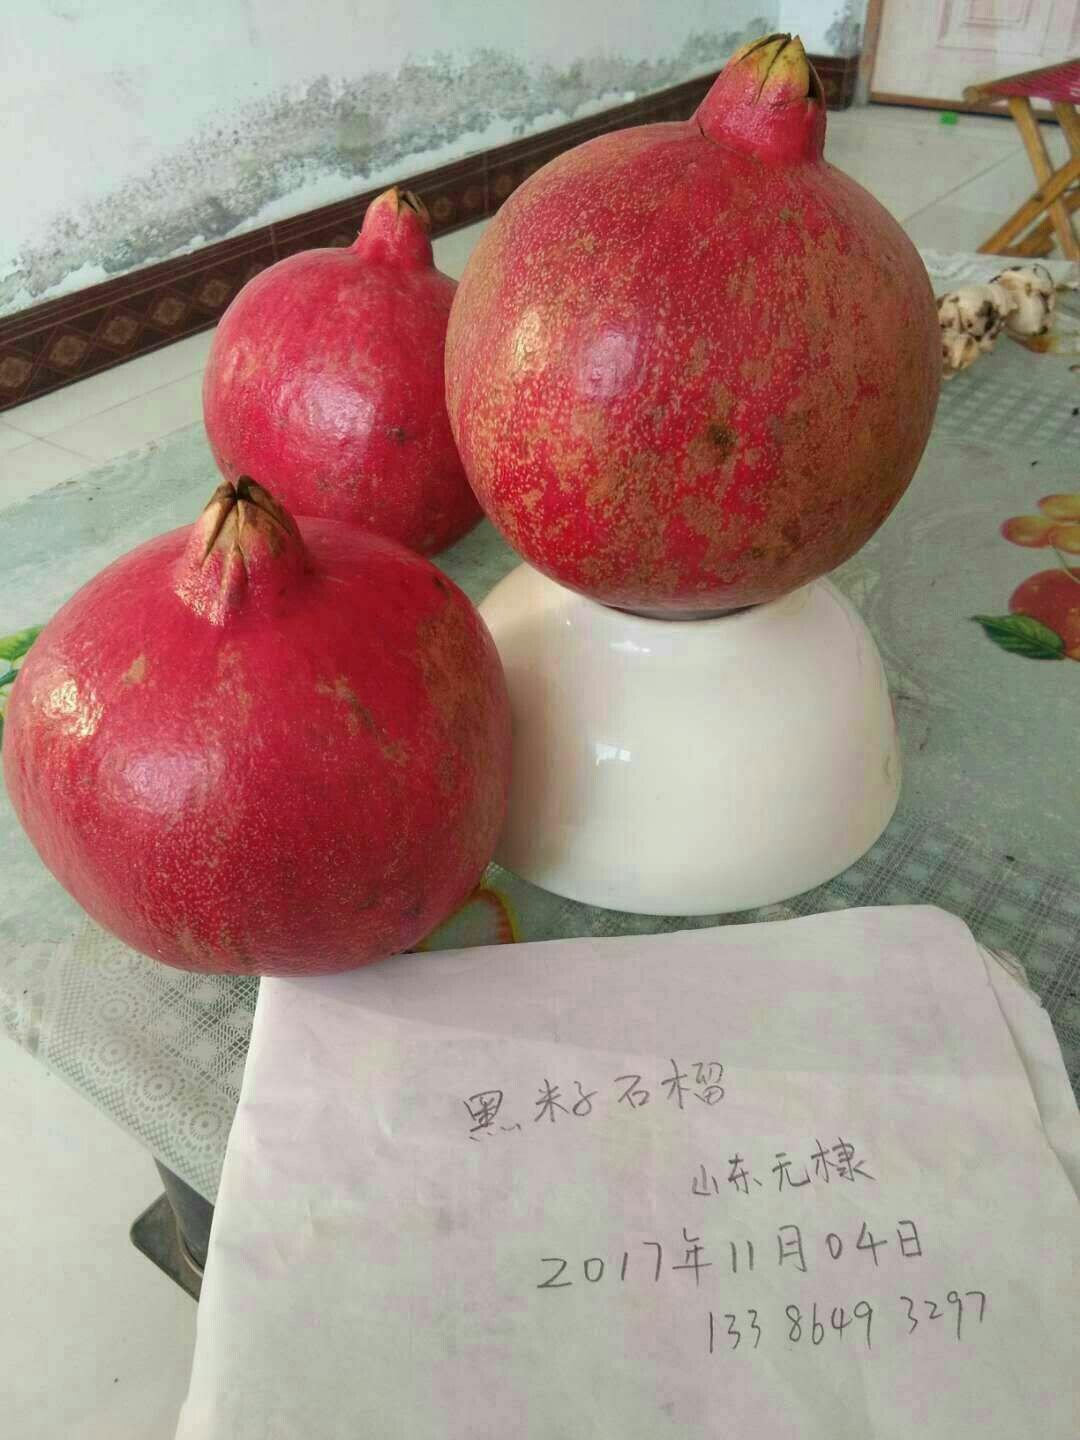 黑籽石榴
山东无棣
2017年11月04日
133 8649 3297